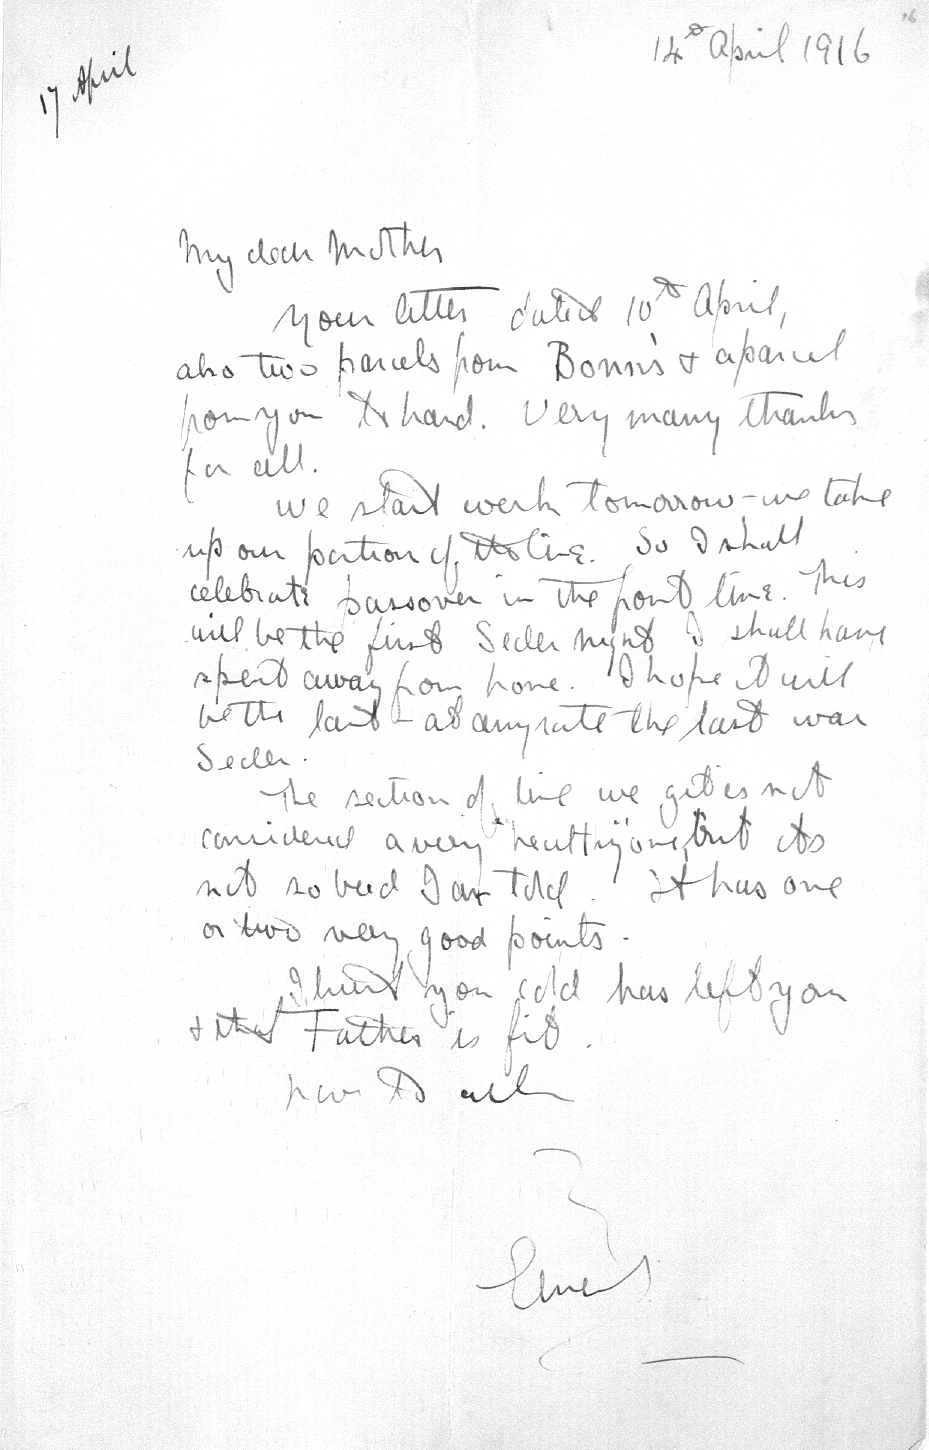 16
14th April 1916
17 April
My dear Mother
Your letter dated 10th April,
also two parcels from Bonn's & a parcel
from you to hand. Very many thanks
for all.
We start work tomorrow - we take
up our portion of the line. So I shall
celebrate passover in the front line. This
will be the first Seder night I shall have
spent away from home. I hope it will
be the last - at any rate the last war
Seder.
The section of line we get is not
considered a very "healthy" one, but its
not so bad I am told. It has one
or two very good points.
I trust your cold has left you
& that Father is fit.
Love to all
Ernest